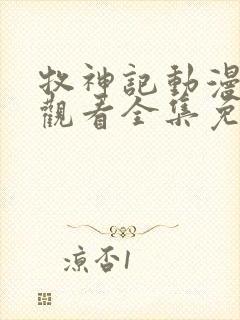 牧神記動漫
觀看全集免
凉否1